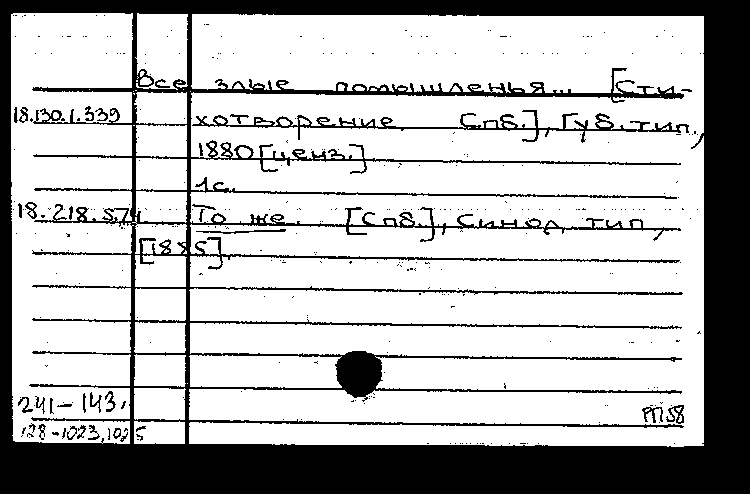 Все злые помышленья... [Сти-
18.130.1.339 хотворение. Спб.], Губ. тип.,
1880 [ценз.]
1 с.
18.218.5.74 То же. [Спб.], Синод. тип.,
[1885].
241-143.
128-1023,1025
РП58